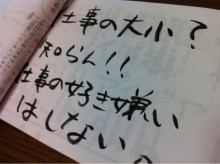 仕事の大小？
知らん！！
仕事の好き嫌い
はしない。